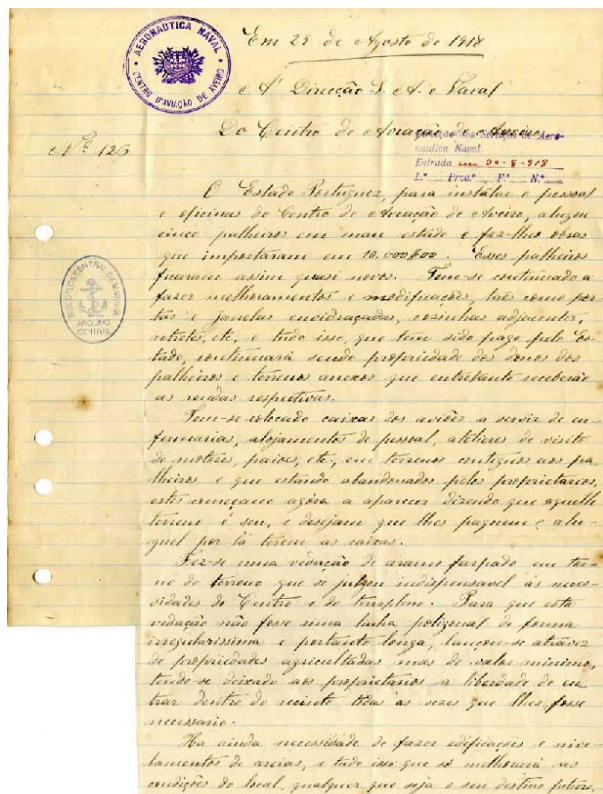 AERONAUTICA NAVAL
CENTRO D'AVIAÇÃO DE AVEIRO
Em 29 de Agosto de 1918
A' Direcção S. A. e Naval
Do Centro de Aviação de Aveiro
Direcção dos Serviços de Aero-
nautica Naval.
Entrada em 30-8-918
L.º Proc.º F.º N.º
Nº 126
O Estado Portuguez, para instalar o pessoal
e oficinas do Centro de Aviação de Aveiro, alugou
cinco palheiros em mau estado e fez-lhes obras
que importaram em 10.000$00. Esses palheiros
ficaram assim quasi novos. Tem-se continuado a
fazer melhoramentos e modificações, taes como por-
tas e janelas envidraçadas, cozinhas adjacentes,
retretes, etc, e tudo isso, que tem sido pago pelo Es-
tado, continuará sendo propriedade dos donos dos
palheiros e terrenos anexos que entretanto receberão
as rendas respectivas.
Tem-se colocado caixas dos aviões a servir de en-
fermarias, alojamentos de pessoal, atelieres de visita
de motores, paioes, etc, em terrenos contiguos aos pa-
lheiros e que estando abandonados pelos proprietarios,
estes começam agora a aparecer dizendo que aquelle
terreno é seu, e desejam que lhes paguem o alu-
guel por lá terem as caixas.
Fez-se uma vedação de arame farpado em tor-
no do terreno que se julgou indispensavel ás neces-
sidades do Centro e do terrapleno. Para que esta
vedação não fosse uma linha poligonal de forma
irregularissima e portanto longa, lançou-se atravez
de propriedades agricultadas mas de valor minimo,
tendo-se deixado aos proprietarios a liberdade de en-
trar dentro do recinto todas as vezes que lhes fosse
necessario.
Ha ainda necessidade de fazer edificações e nive-
lamentos de areias, e tudo isso que só melhorará as
condições do local, qualquer que seja o seu destino futuro,
ARQUIVO
CENTRAL